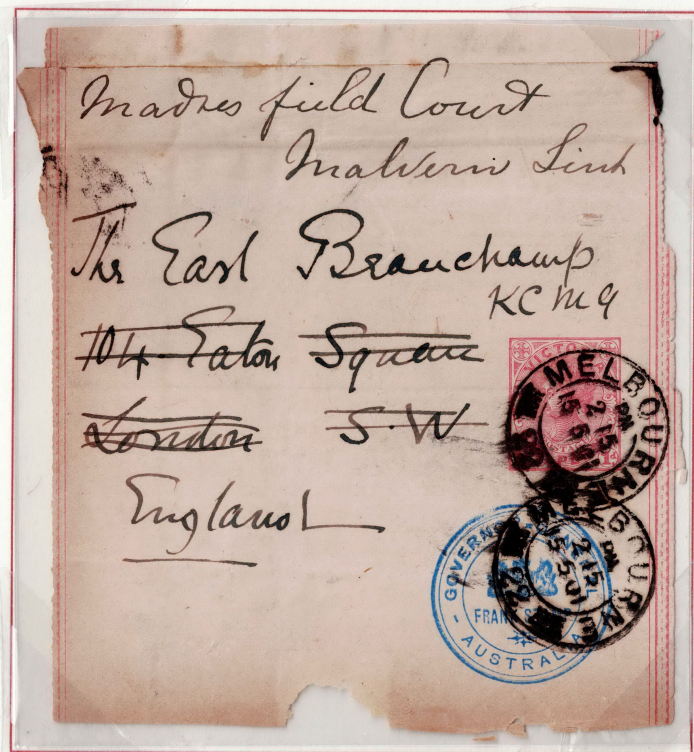 Madresfield Court
Malvern Link
The Earl Beauchamp
KCMG
104 Eaton Square
London S.W
England
VICTO
MELBOURNE
2 15 PM
15 5 01
22
MELBOURNE
2 15 PM
15 5 01
22
GOVERNO
FRAN
AUSTRAL